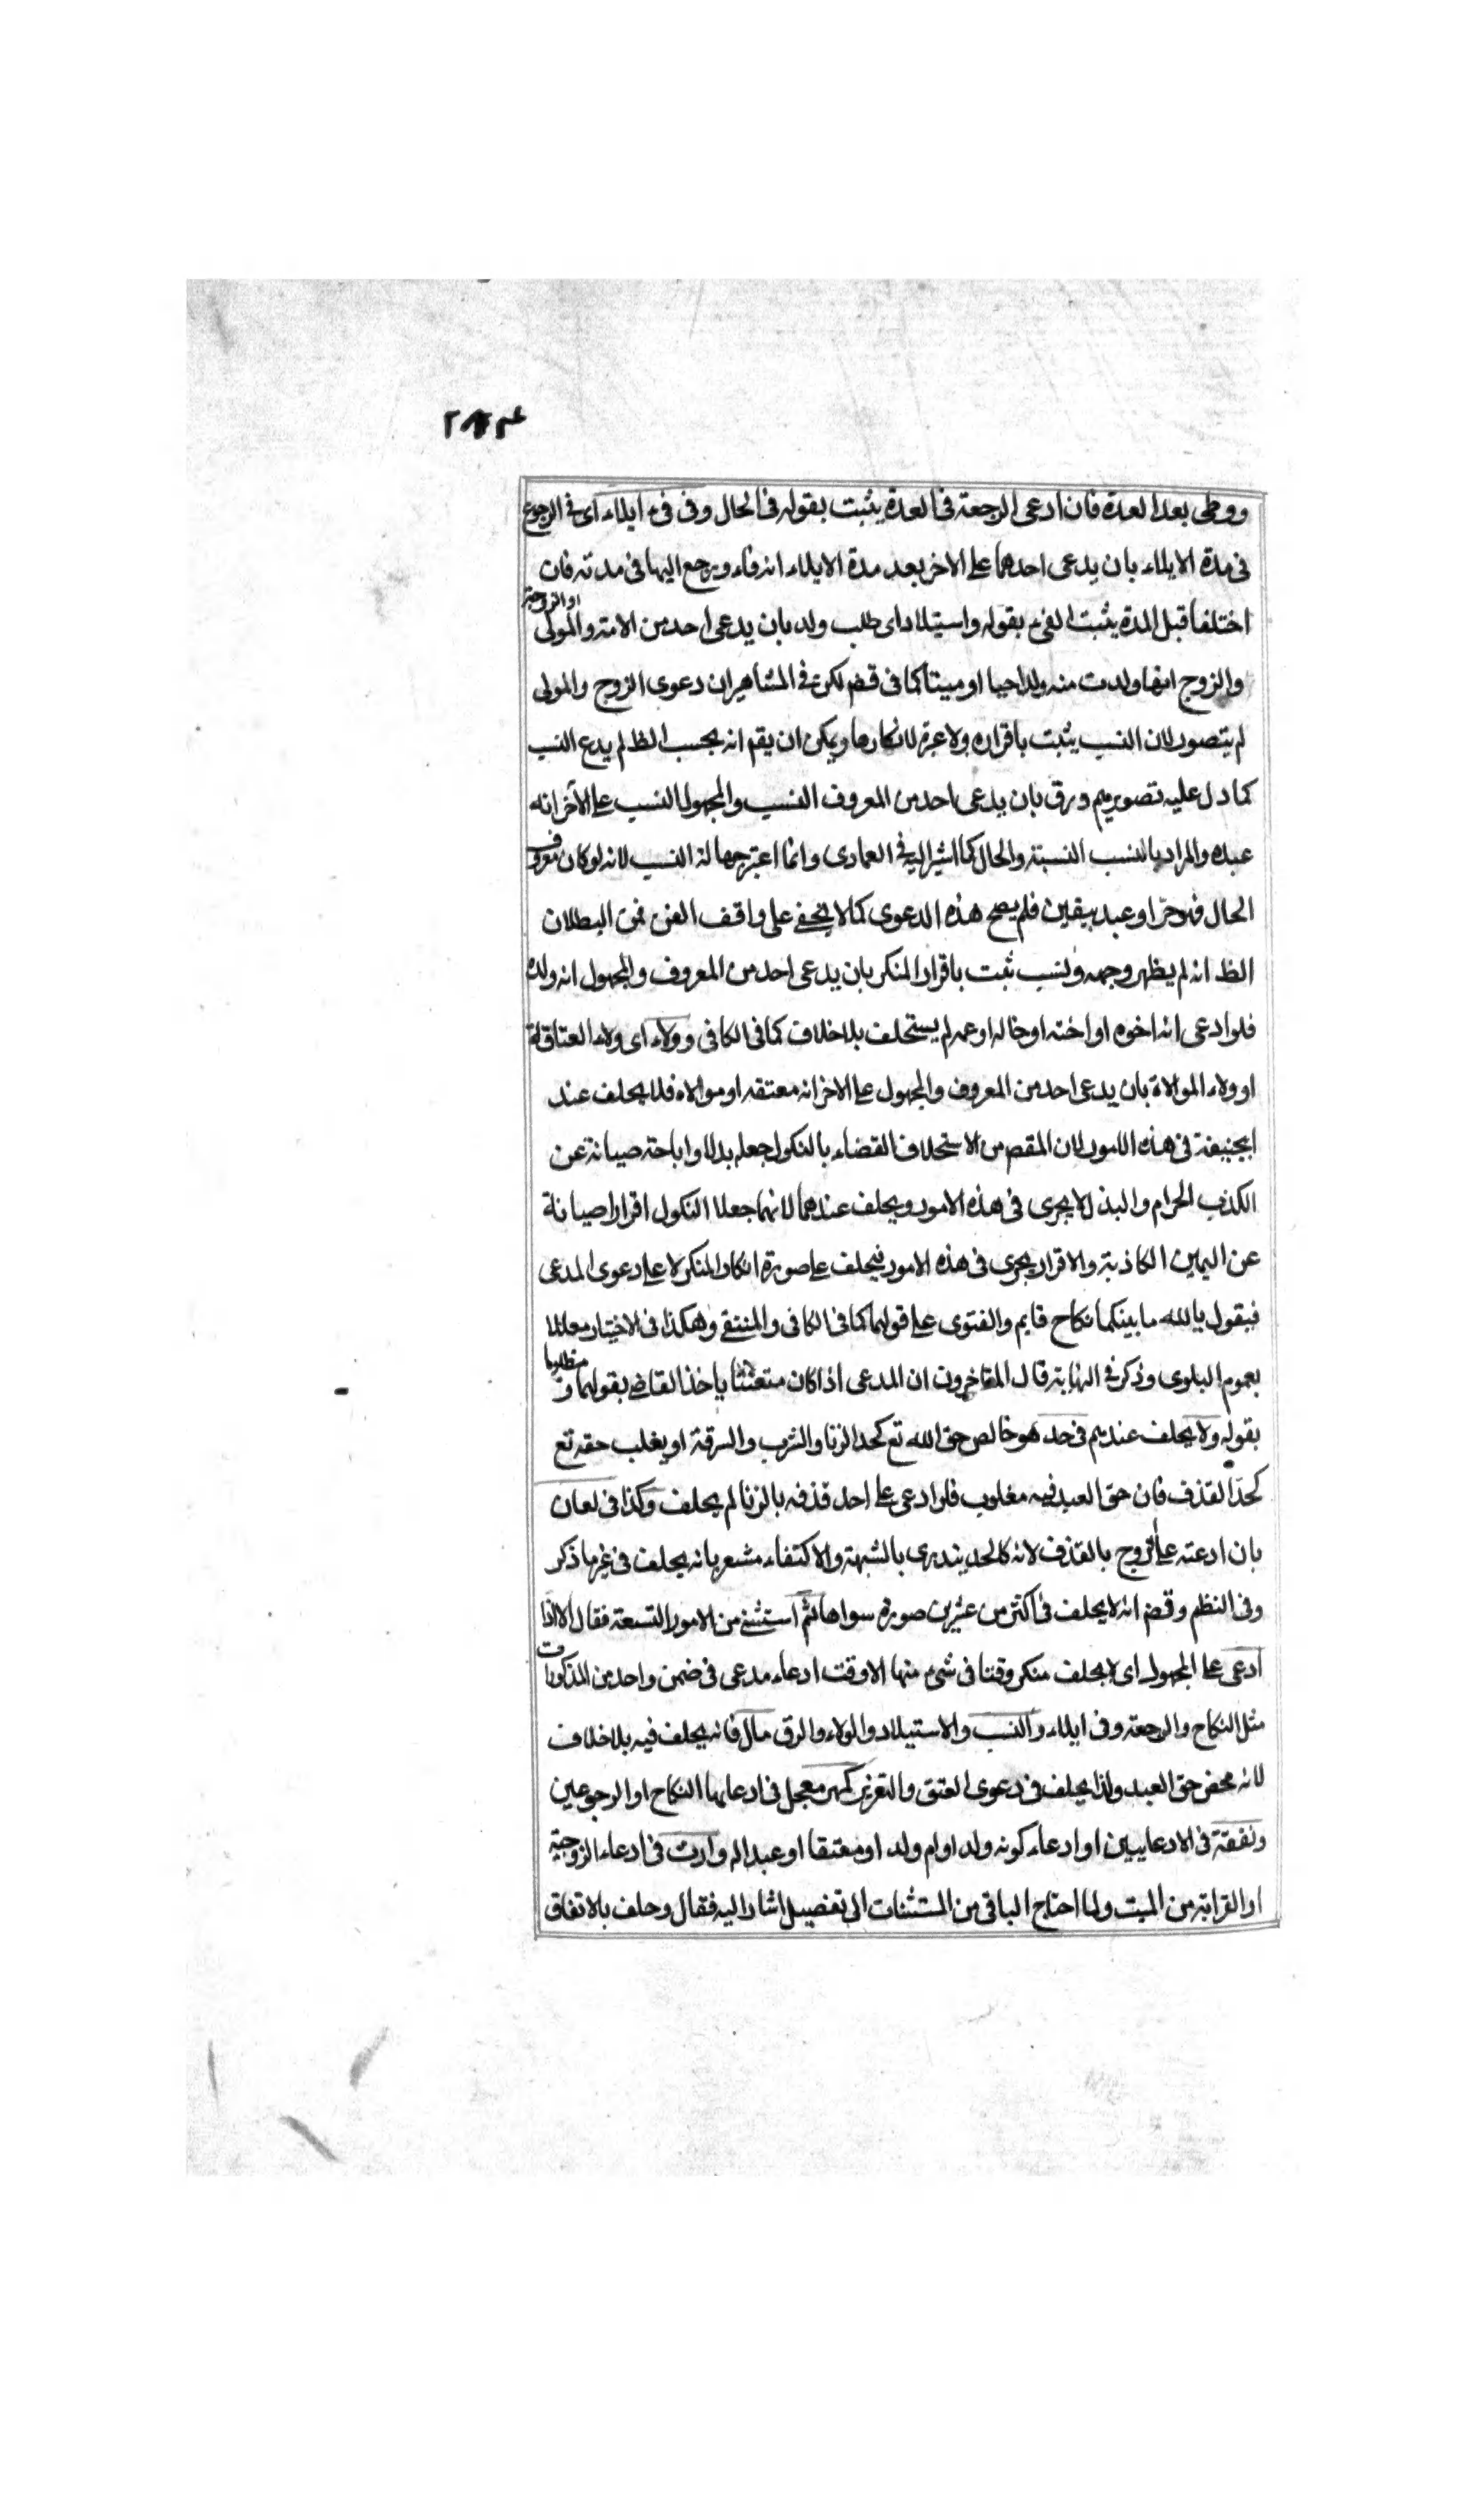 ووطى بعد العدة فان ادعى الرجعة فى العدة يثبت بقوله فى الحال وفى فىء ايلاء اى فى الرجوع
فى مدة الايلاء بان يدعى احدهما على الاخر بعد مدة الايلاء انه فاء ويرجع اليها فى مدته فان
اختلفا قبل المدة يثبت الفىء بقوله واستيلاد اى طلب ولد بان يدعى احد من الامة والمولى
او الزوجة
والزوج انها ولدت منه ولدا حيا او ميتا كما فى قضـ لكن فى المشاهير ان دعوى الزوج والمولى
لم يتصور لان النسب يثبت باقراره ولا عبرة لانكارها ويمكن ان يقم انه بحسب الظ لم يدع النسب
كما دل عليه تصويرهم ورق بان يدعى احد من المعروف النسب والمجهول النسب على الآخر انه
عبده والمراد بالنسب النسبة والحال كما اشير اليه فى العمادى وانما اعتبر جهالة النسب لانه لو كان معروف
الحال فهو حر او عبد بيقين فلم يصح هذه الدعوى كما لا يخفى على واقف الفن فمن البطلان
الظ انه لم يظهر وجهه ونسب ثبت باقرار المنكر بان يدعى احد من المعروف والمجهول انه ولده
فلو ادعى انه اخوه او اخته او خاله او عمه لم يستحلف بلا خلاف كما فى الكافى وولاء اى ولاء العتاقة
او ولاء الموالاة بان يدعى احد من المعروف والمجهول على الاخر انه معتقه او مولاه فلا يحلف عند
ابيحنيفة فى هذه الامور لان المقصـ من الاستحلاف القضاء بالنكول جعله بدلا واباحة صيانة عن
الكذب الحرام والبذل لا يجرى فى هذه الامور ويحلف عندهما لانهما جعلا النكول اقرارا صيانة
عن اليمين الكاذبة والاقرار يجرى فى هذه الامور فيحلف على صورة انكار المنكر لا على دعوى المدعى
فيقول بالله ما بينكما نكاح قايم والفتوى على قولهما كما فى الكافى والمنتقى وهكذا فى الاختيار معللا
بعموم البلوى وذكر فى النهاية قال المتاخرون ان المدعى اذا كان متعنتا ياخذ القاضى بقولهما و
مظلوما
بقوله ولا يحلف عندهم فى حد هو خالص حق الله تع كحد الزنا والشرب والسرقة او يغلب حقه تع
كحد القذف فان حق العبد فيه مغلوب فلو ادعى على احد قذفه بالزنا لم يحلف وكذا فى لعان
بان ادعته على الزوج بالقذف لانه كالحد يندرى بالشبهة والاكتفاء مشعر بانه يحلف فى غير ما ذكر
وفى النظم وقضـ انه لا يحلف فى اكثر من عشرين صورة سواها ثم استثنى من الامور التسعة فقال الا اذا
ادعى على المجهول اى لا يحلف منكر وقتا فى شىء منها الا وقت ادعاء مدعى فى ضمن واحد من المذكورات
مثل النكاح والرجعة وفىء ايلاء والنسب والاستيلاد والولاء والرق مال فانه يحلف فيه بلا خلاف
لانه محض حق العبد ولذا يحلف فى دعوى العتق والتعزير كمهر معجل فى ادعائها النكاح او الرجوعين
ونفقة فى الادعايين او ادعاء كونه ولد او ام ولد او معتقا او عبدا له وارث فى ادعاء الزوجية
او القرابة من الميت ولما احتاج الباقى من المستثنات الى تفصيل اشار اليه فقال وحلف بالاتفاق